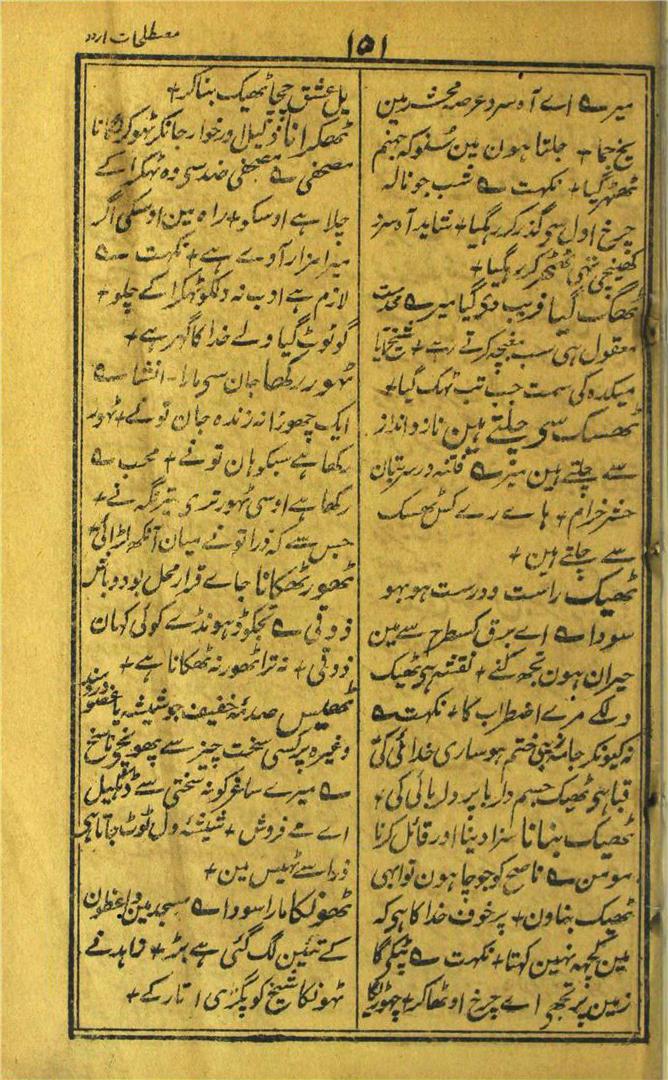 مصطلحات اردو
۱۵۱
میر ے اے آہ سرد عرصہ محشر مین
یخ جما + جلتا ہون مین سنو کہ جہنم
ٹھٹھر گیا + نکہت ے شب جو نالہ
چرخ اول سی گذر کر رہگیا + شاید آہ سرد
کھینچی تہی ٹھٹھر کر رہگیا +
ٹھگ گیا فریب دی گیا میر ے
معقول ہی سب مغبچہ کرتے رہے + شیخ آیا
میکدہ کی سمت جب تب ٹہگ گیا +
ٹھسک سی چلتے ہین ناز و انداز
سے چلتے ہین میر ے فتنہ در سر بتان
حشر خرام + ہاے رے کس ٹھسک
سے چلتے ہین +
ٹھیک راست و درست ہو بہو
سودا ے اے برق کسطرح سے مین
حیران ہون تجھ کنے + نقشہ ہی ٹھیک
دلکے مرے اضطراب کا + نکہت ے
نہ کیونکر جامہ زیبی ختم ہو ساری خدائی کی
قبا ہی ٹھیک جسم دلربا پر دلربائی کی +
ٹھیک بنانا سزا دینا اور قائل کرنا
مومن ے ناصح کو جو چاہون تو ابھی
ٹھیک بناون + پر خوف خدا کا ہی کہ
مین کچہہ نہین کہتا + نکہت ے پٹکے گا
زمین پر تجھی اے چرخ اوٹھا کر + چھوڑیگا
یل عشق چچا ٹھیک بنا کر +
ٹھکرانا ذلیل اور خوار جانکر ٹھوکر
مصحفی ے مصحفی ضد سی وہ ٹہکرا کے
چلا ہے اوسکو + راہ مین اوسکی اگر
میرا مزار آوے ہے + نکہت ے
لازم ہے ادب نہ دلکو ٹہکرا کے چلو +
گو ٹوٹ گیا ولے خدا کا گہر ہے +
ٹہور رکھا جان سی مارا - انشا ے
ایک چھوڑا نہ زندہ جان تو نے + ٹہور
رکھا ہے سبکو ہان تو نے + محب ے
رکھا ہے اوسی ٹہور تری تیر نگہ نے +
جس سے کہ ذرا تو نے میان آنکھ لڑائی +
ٹھور ٹھکانا جاے قرار محل بود و باش
ذوقی ے تجکو ڈہونڈے کوئی کہان
ذوقی + نہ ترا ٹھور نہ ٹھکانا ہے +
ٹھیس صدمہ خفیف جو شیشہ یا عضو
وغیرہ پر کسی سخت چیز سے پھونچی ناسخ
ے میرے ساغر کو نہ سختی سے ڈہکیل
اے مے فروش + شیشۂ دل ٹوٹ جاتا ہی
ذرا سے ٹہیس مین +
ٹھولکا مارا سودا ے مسجد مین واعظون
کے تئین لگ گئی ہے بڑ + زاہد نے
ٹہونکا شیخ کو پگڑی اتار کے +